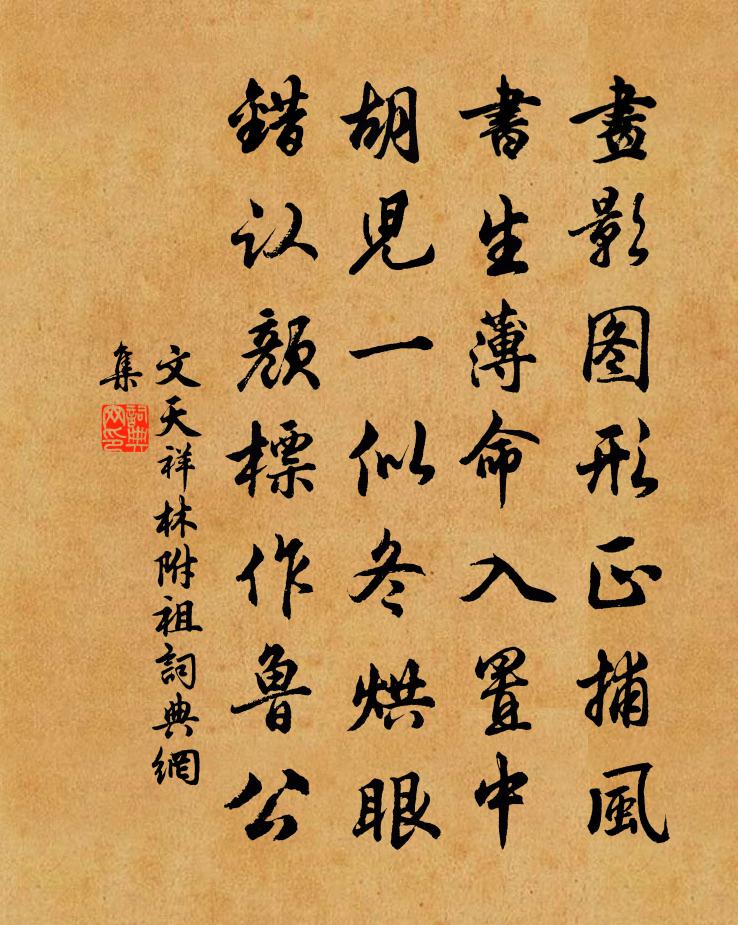 畫影图形正捕風
書生薄命入置中
胡児一似冬烘眼
錯认顔標作魯公
文天祥林附祖詞典網
集
詞典
网印